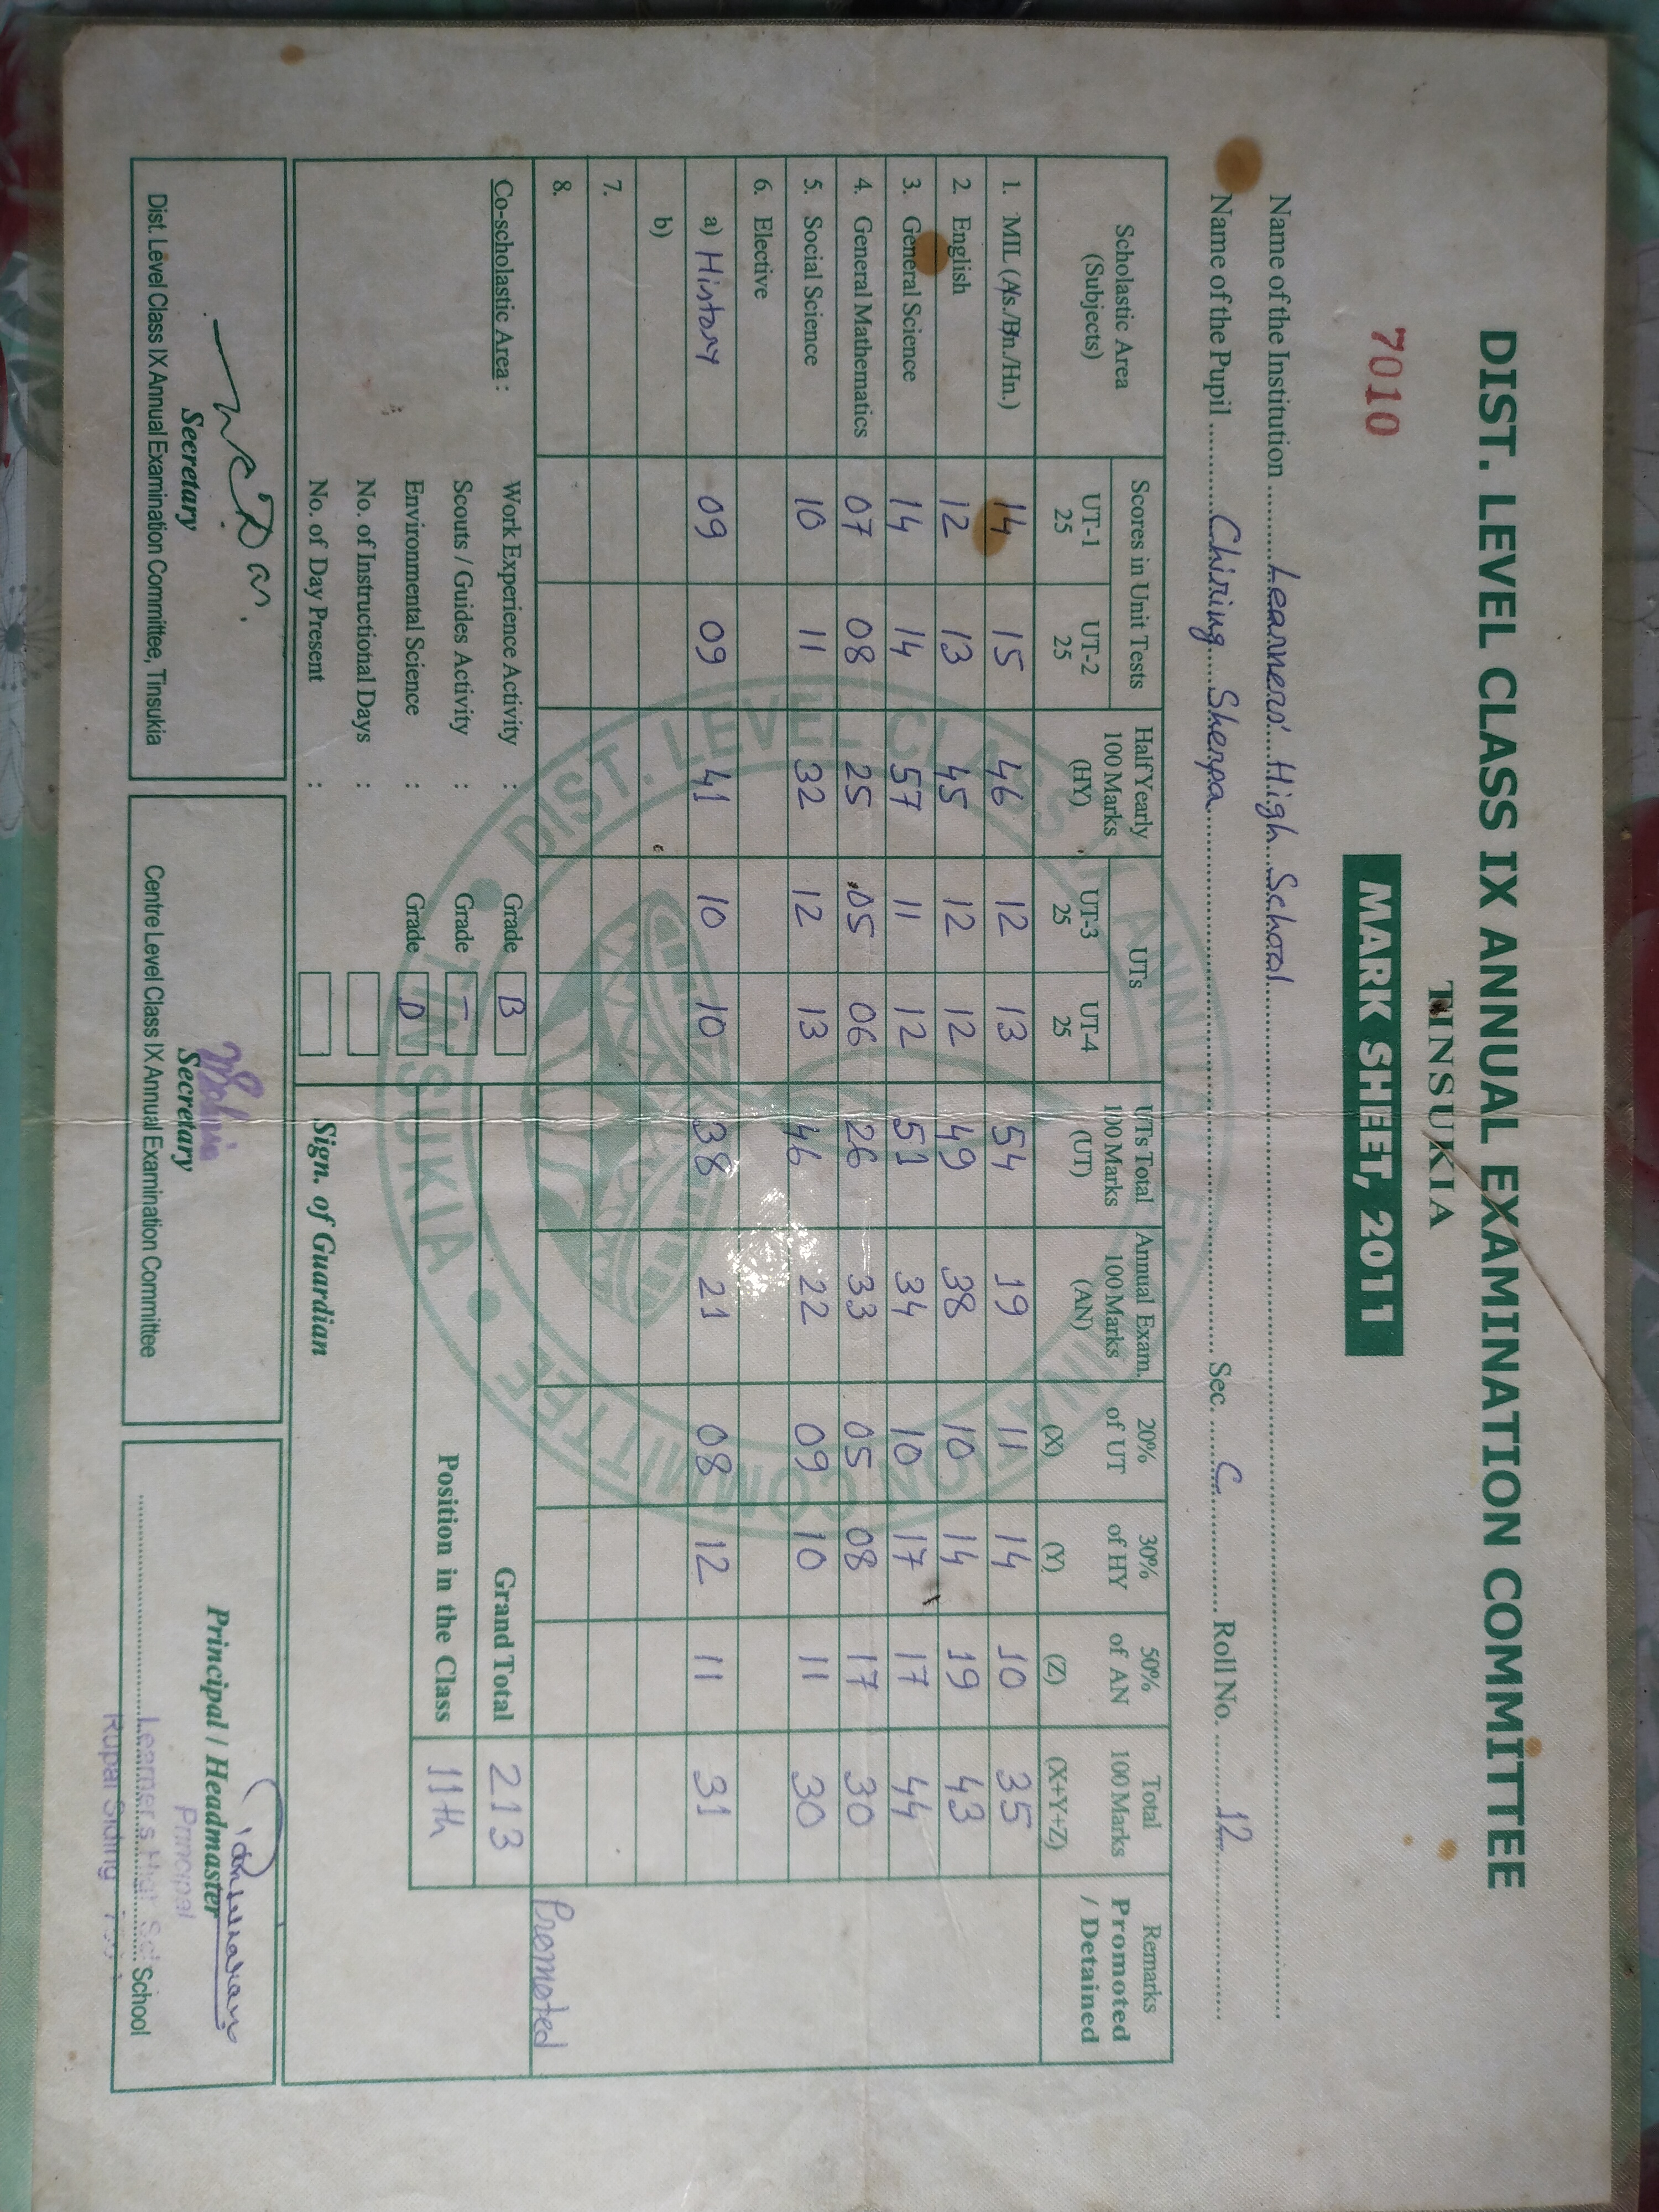 DIST. LEVEL CLASS IX ANNUAL EXAMINATION COMMITTEE
TINSUKIA
7010
MARK SHEET, 2011
Name of the Institution Learners' High School
Name of the Pupil Chiring Sherpa Sec. C Roll No. 12
Scholastic Area (Subjects) Scores in Unit Tests UT-1 25 UT-2 25 Half Yearly 100 Marks (HY) UTs UT-3 25 UT-4 25 UTs Total 100 Marks (UT) Annual Exam. 100 Marks (AN) 20% of UT (X) 30% of HY (Y) 50% of AN (Z) Total 100 Marks (X+Y+Z) Remarks Promoted / Detained
1. MIL (A/s./Bn./Hn.) 14 15 46 12 13 54 19 11 14 10 35
2. English 12 13 45 12 12 49 38 10 14 19 43
3. General Science 14 14 57 11 12 51 34 10 17 17 44
4. General Mathematics 07 08 25 05 06 26 33 05 08 17 30
5. Social Science 10 11 32 12 13 46 22 09 10 11 30
6. Elective
a) History 09 09 41 10 10 38 21 08 12 11 31
b)
7.
8.
Promoted
Co-scholastic Area : Work Experience Activity : Grade B Grand Total 213
Scouts / Guides Activity : Grade –
Environmental Science : Grade D Position in the Class 11th
No. of Instructional Days :
No. of Day Present : Sign. of Guardian
Secretary
Dist. Level Class IX Annual Examination Committee, Tinsukia
Secretary
Centre Level Class IX Annual Examination Committee
Principal / Headmaster
Principal
School
Rupai Siding
DIST. LEVEL CLASS IX ANNUAL EXAMINATION COMMITTEE
TINSUKIA